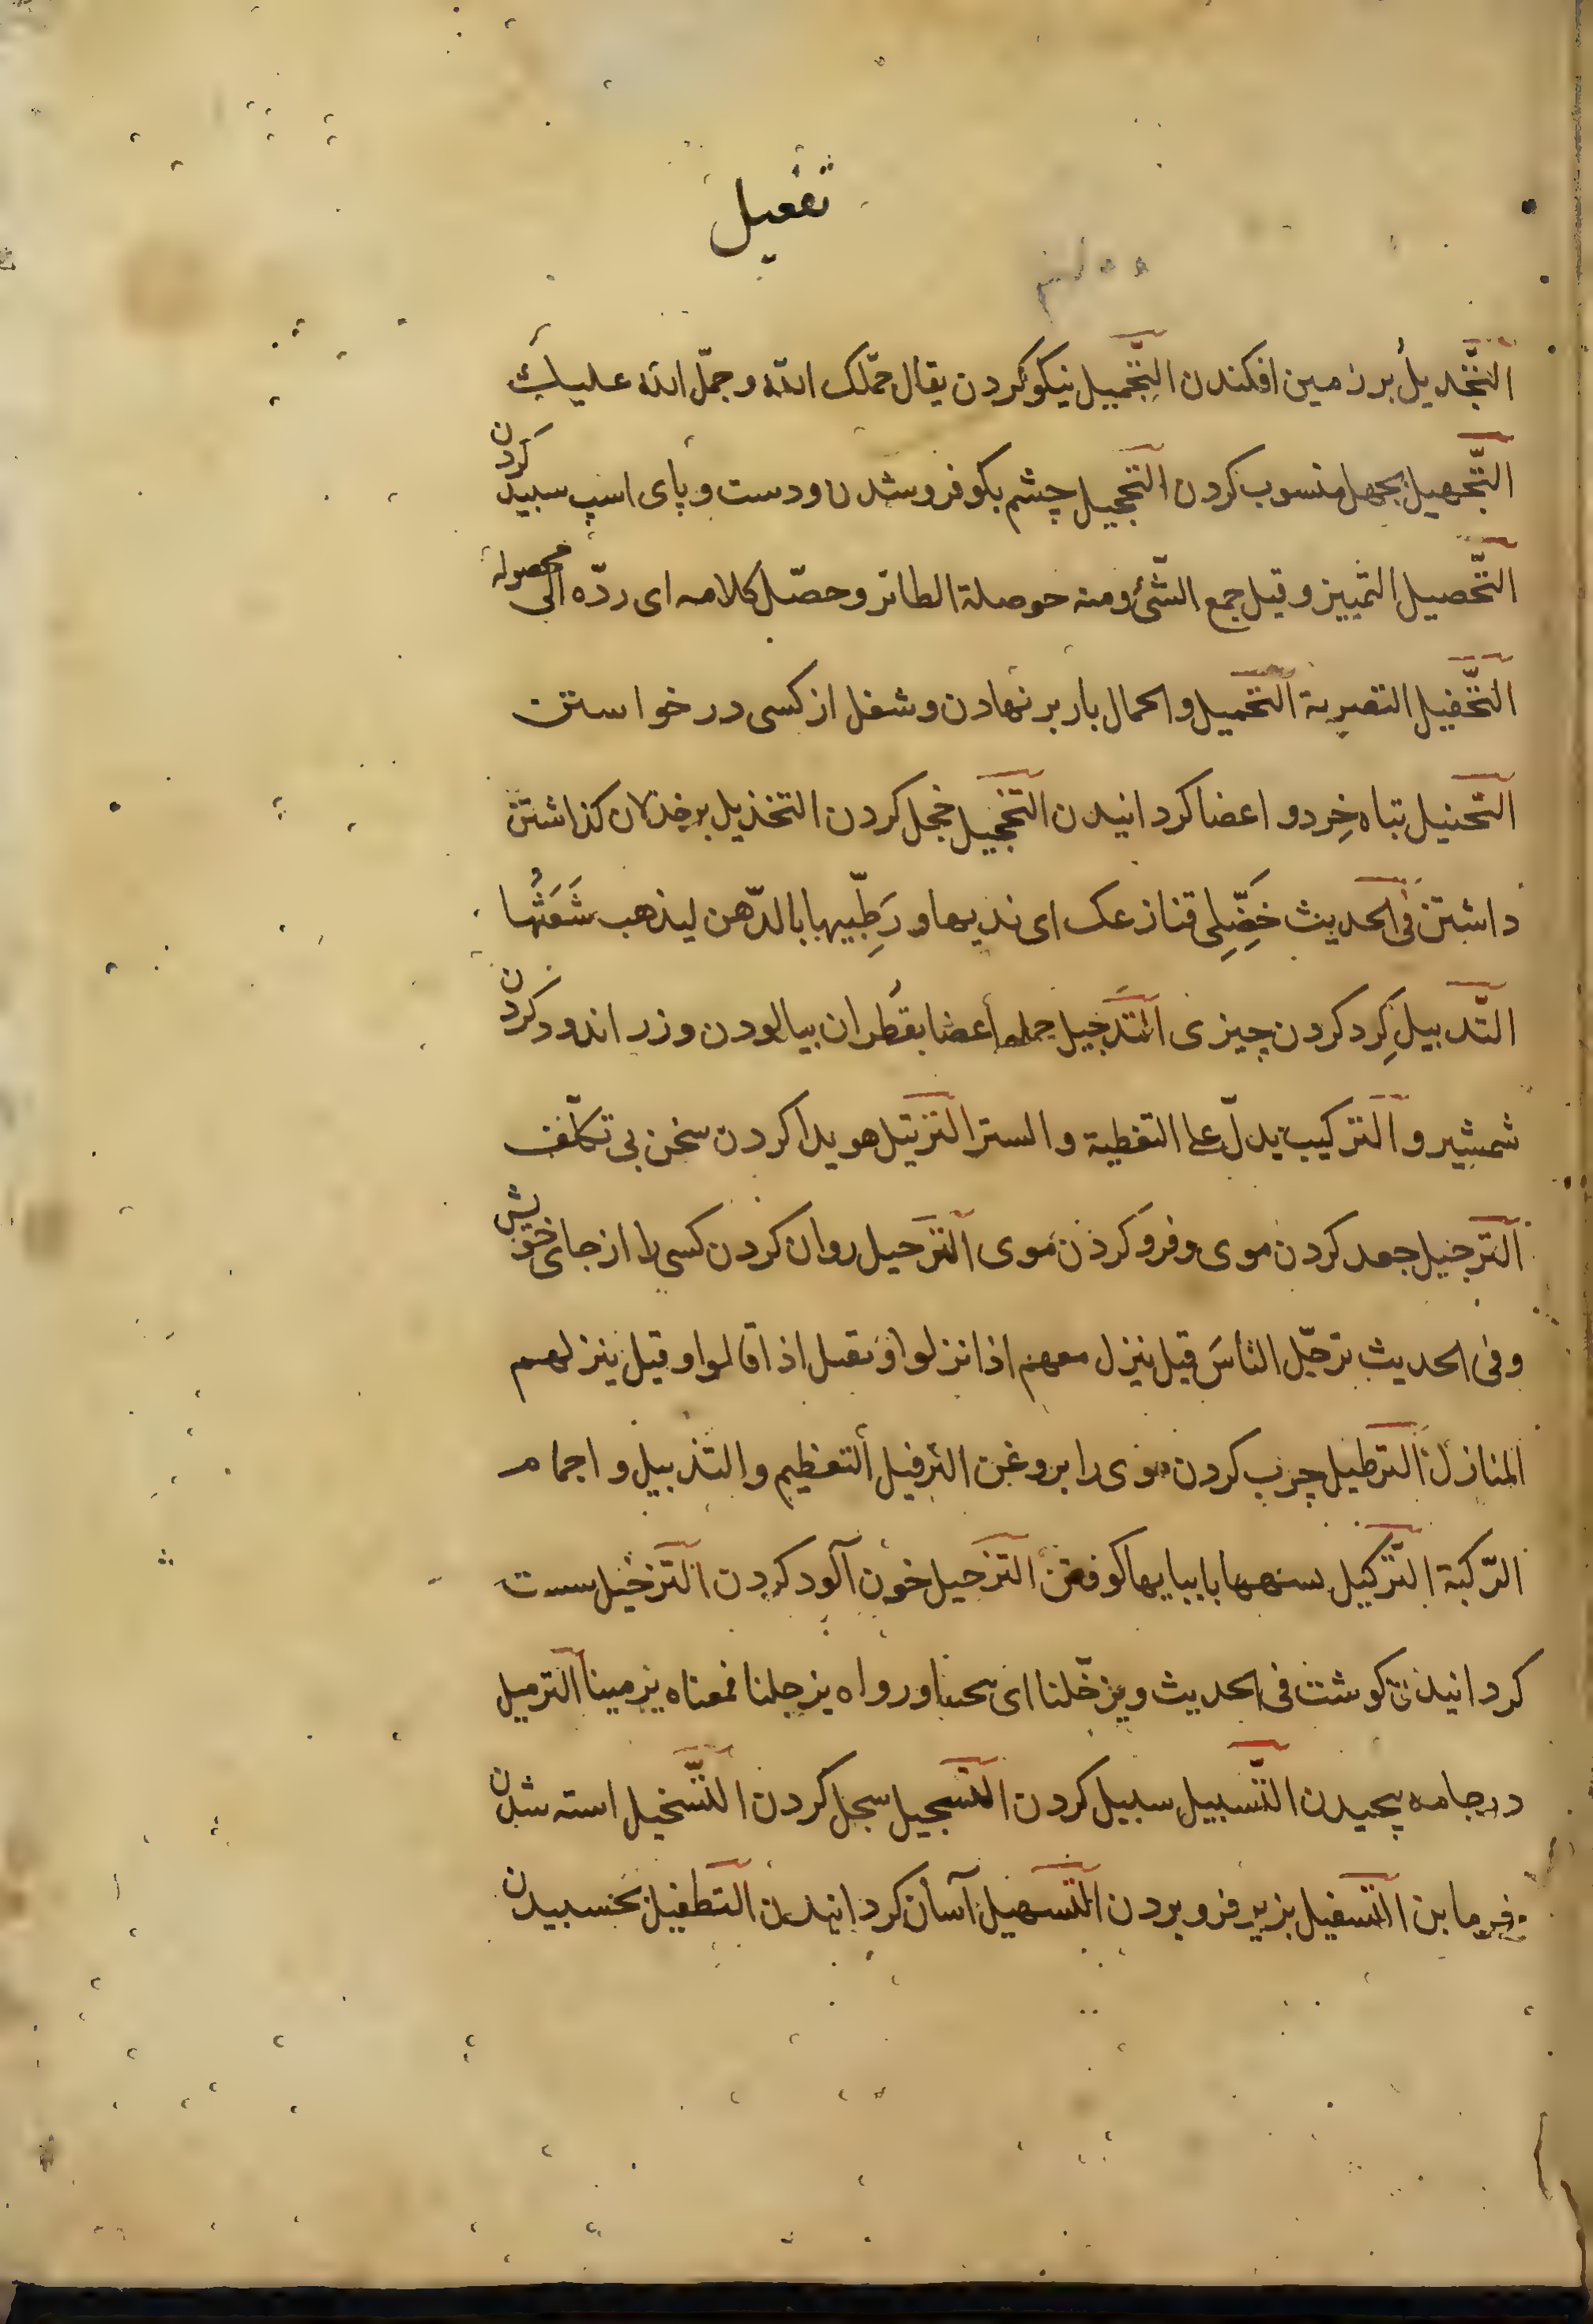 تفعیل
التَّجْدیلُ بر زمین افکندن التَّجمیل نیکو کردن یقال جمّلک الله وجمّل الله علیك
التَّجهیل بجهل منسوب کردن التحجیل چشم بکو فرو شدن و دست و پای اسپ سبید کردن
التَّحصیل التمییز و قیل جمع الشّئ ومنه حوصلة الطائر وحصّل کلامه ای ردّه الی محصوله
التَّحفیل التصریة التّحمیل والحمال بار بر نهادن و شغل از کسی درخواستن
التَّخبیل تباه خِرد و اعضا کردانیدن التّخجیل خجل کردن التخذیل بر خذلان کذاشتن
داشتن فی الحدیث خَضِّلِی قنازعک ای ندیها و رَطِّبیها بالدّهن لیذهب شَعَثُها
التَّدبیل کِرد کردن چیزی التَّدجیل جمله أعضا بقَطران بیالودن و زر اندود کردن
شمشیر و الترکیب یدلّ علی التغطیة والستر الترتیل هویدا کردن سخن بی تکلّف
الترجیل جعد کردن موی و فرو کردن موی الترحیل روان کردن کسی را از جای خویش
وفی الحدیث ترحّل الناسَ قیل ینزل معهم اذا نزلوا و یقیل اذا قالوا و قیل ینزلهم
المنازل الترطیل چرب کردن موی را بروغن الترفیل التعظیم والتذییل و اجمام
الرّکیة الترکیل سنبها بایپایها کوفتن التزحیل خون آلود کردن الترخیل سست
کردانیدن کوشت فی الحدیث ویزحّلنا ای ینحینا و رواه یزجلنا فمعناه یرمینا التزمیل
در جامه پیچیدن التَّسبیل سبیل کردن التسجیل سجل کردن التَّسخیل استه شدن
خرما بن التسفیل بزیر فرو بردن التسهیل آسان کردانیدن التطفیل بخسبیدن